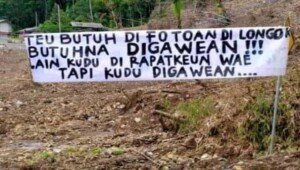 TEU BUTUH DI FOTOAN DI LONGOK
BUTUHNA DIGAWEAN !!!
LAIN KUDU DI RAPATKEUN WAE
TAPI KUDU DIGAWEAN....